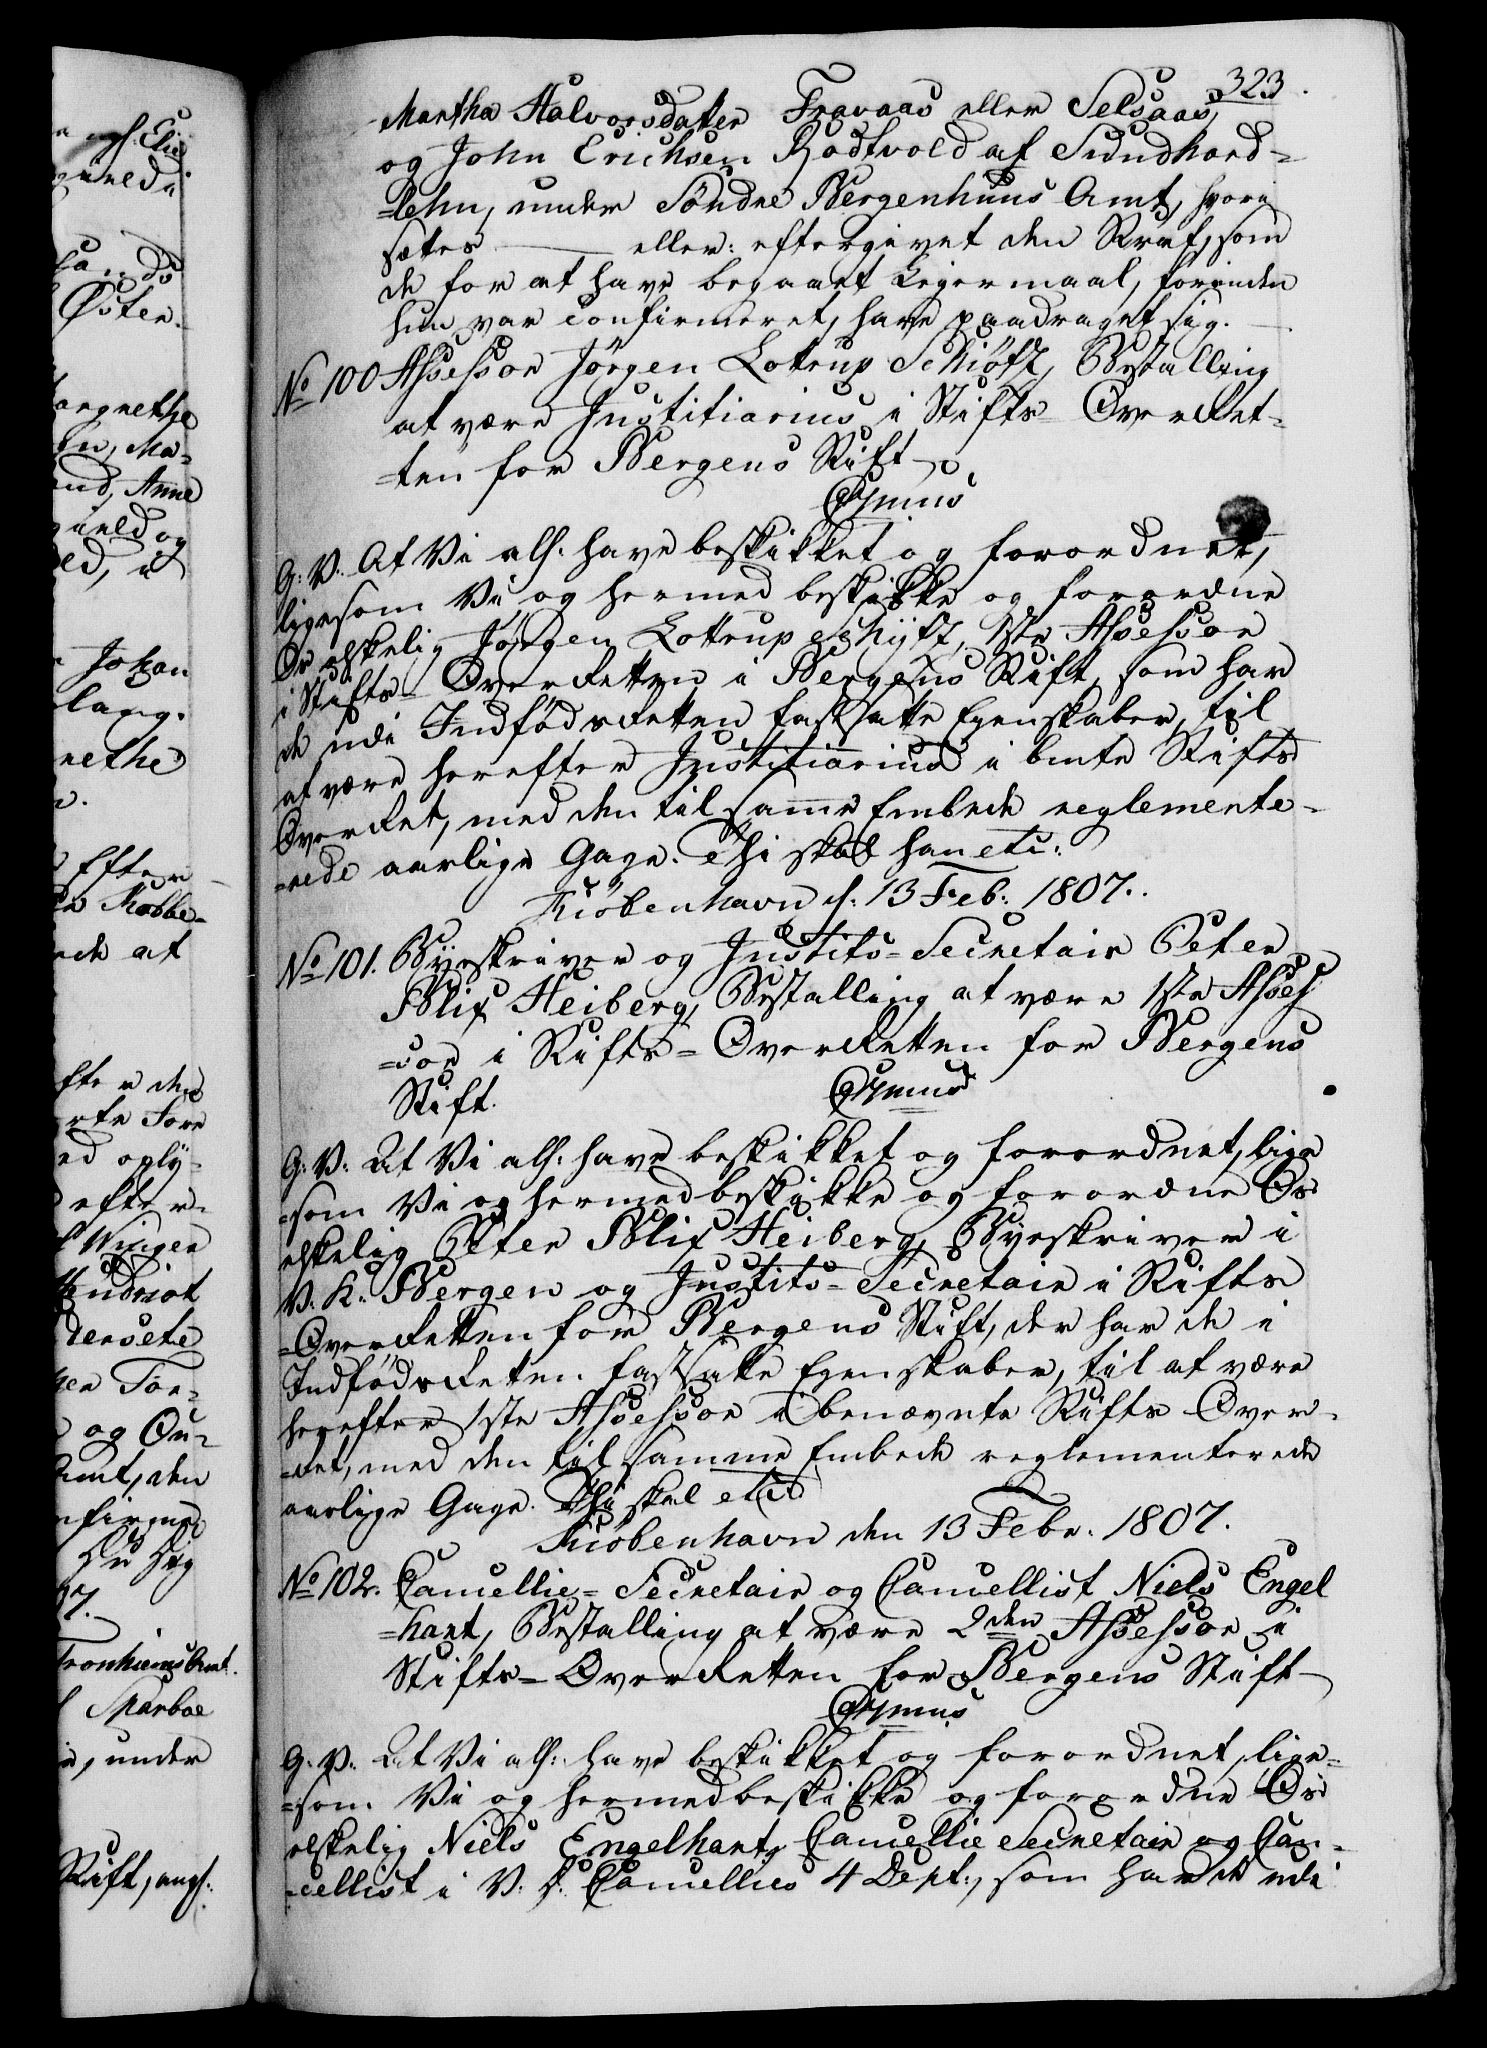 323.
Martha Halvorsdatter Travaas eller Selsaas,
og John Erichsen Rodtvold af Sundhord-
=lehn, under Söndre Bergenhuus Amt, hvori
sætes ——— eller: eftergivet den Straf, som
de for at have begaaet Leiermaal, forinden
hun var confirmeret, have paadraget sig. —
No 100 Assessor Jörgen Lotrup Schiötz, Bestalling
at være Justitiarius i Stifts= OverRet=
=ten for Bergens Stift
G: V: At Vi alf: have beskikket og forordnet,
ligesom Vi og hermed beskikke og forordne
Os elskelig Jörgen Lottrup Schÿtz, 1ste Assessor
i Stifts= OverRetten i Bergens Stift, som har
de udi IndfödsRetten fastsatte Egenskaber, til
at være herefter Justitiarius i bmte Stifts
OverRet, med den til samme Embede reglemente=
=rede aarlige Gage. Thi skal han etc:
Kiöbenhavn d: 13 Feb: 1807.
No 101. Byeskriver og Justits=Secretair Peter
Blix Heiberg, Bestalling at være 1ste Asses
=sor i Stifts=OverRetten for Bergens
Stift.
G: V: At Vi alf: have beskikket og forordnet, lige
=som Vi og hermed beskikke og forordne Os
elskelig Peter Blix Heiberg, Byeskriver i
V. K: Bergen og Justits=Secretair i Stifts
=OverRetten for Bergens Stift, der har de i
IndfödsRetten fastsatte Egenskaber, til at være
herefter 1ste Assessor i benævnte Stifts Over=
=Ret, med den til samme Embede reglementerede
aarlige Gage. Thi skal etc
Kiöbenhavn den 13 Febr. 1807.
No 102. Cancellie=Secretair og Cancellist Niels Engel
=hart, Bestalling at være 2den Assessor i
Stifts=OverRetten for Bergens Stift
G. V. At Vi alf: have beskikket og forordnet, lige=
=som Vi og hermed beskikke og forordne Os
elskelig Niels Engelhart, Cancellie Secretair og Can=
=cellist i V: D: Cancellies 4 Dept:, som har de udi